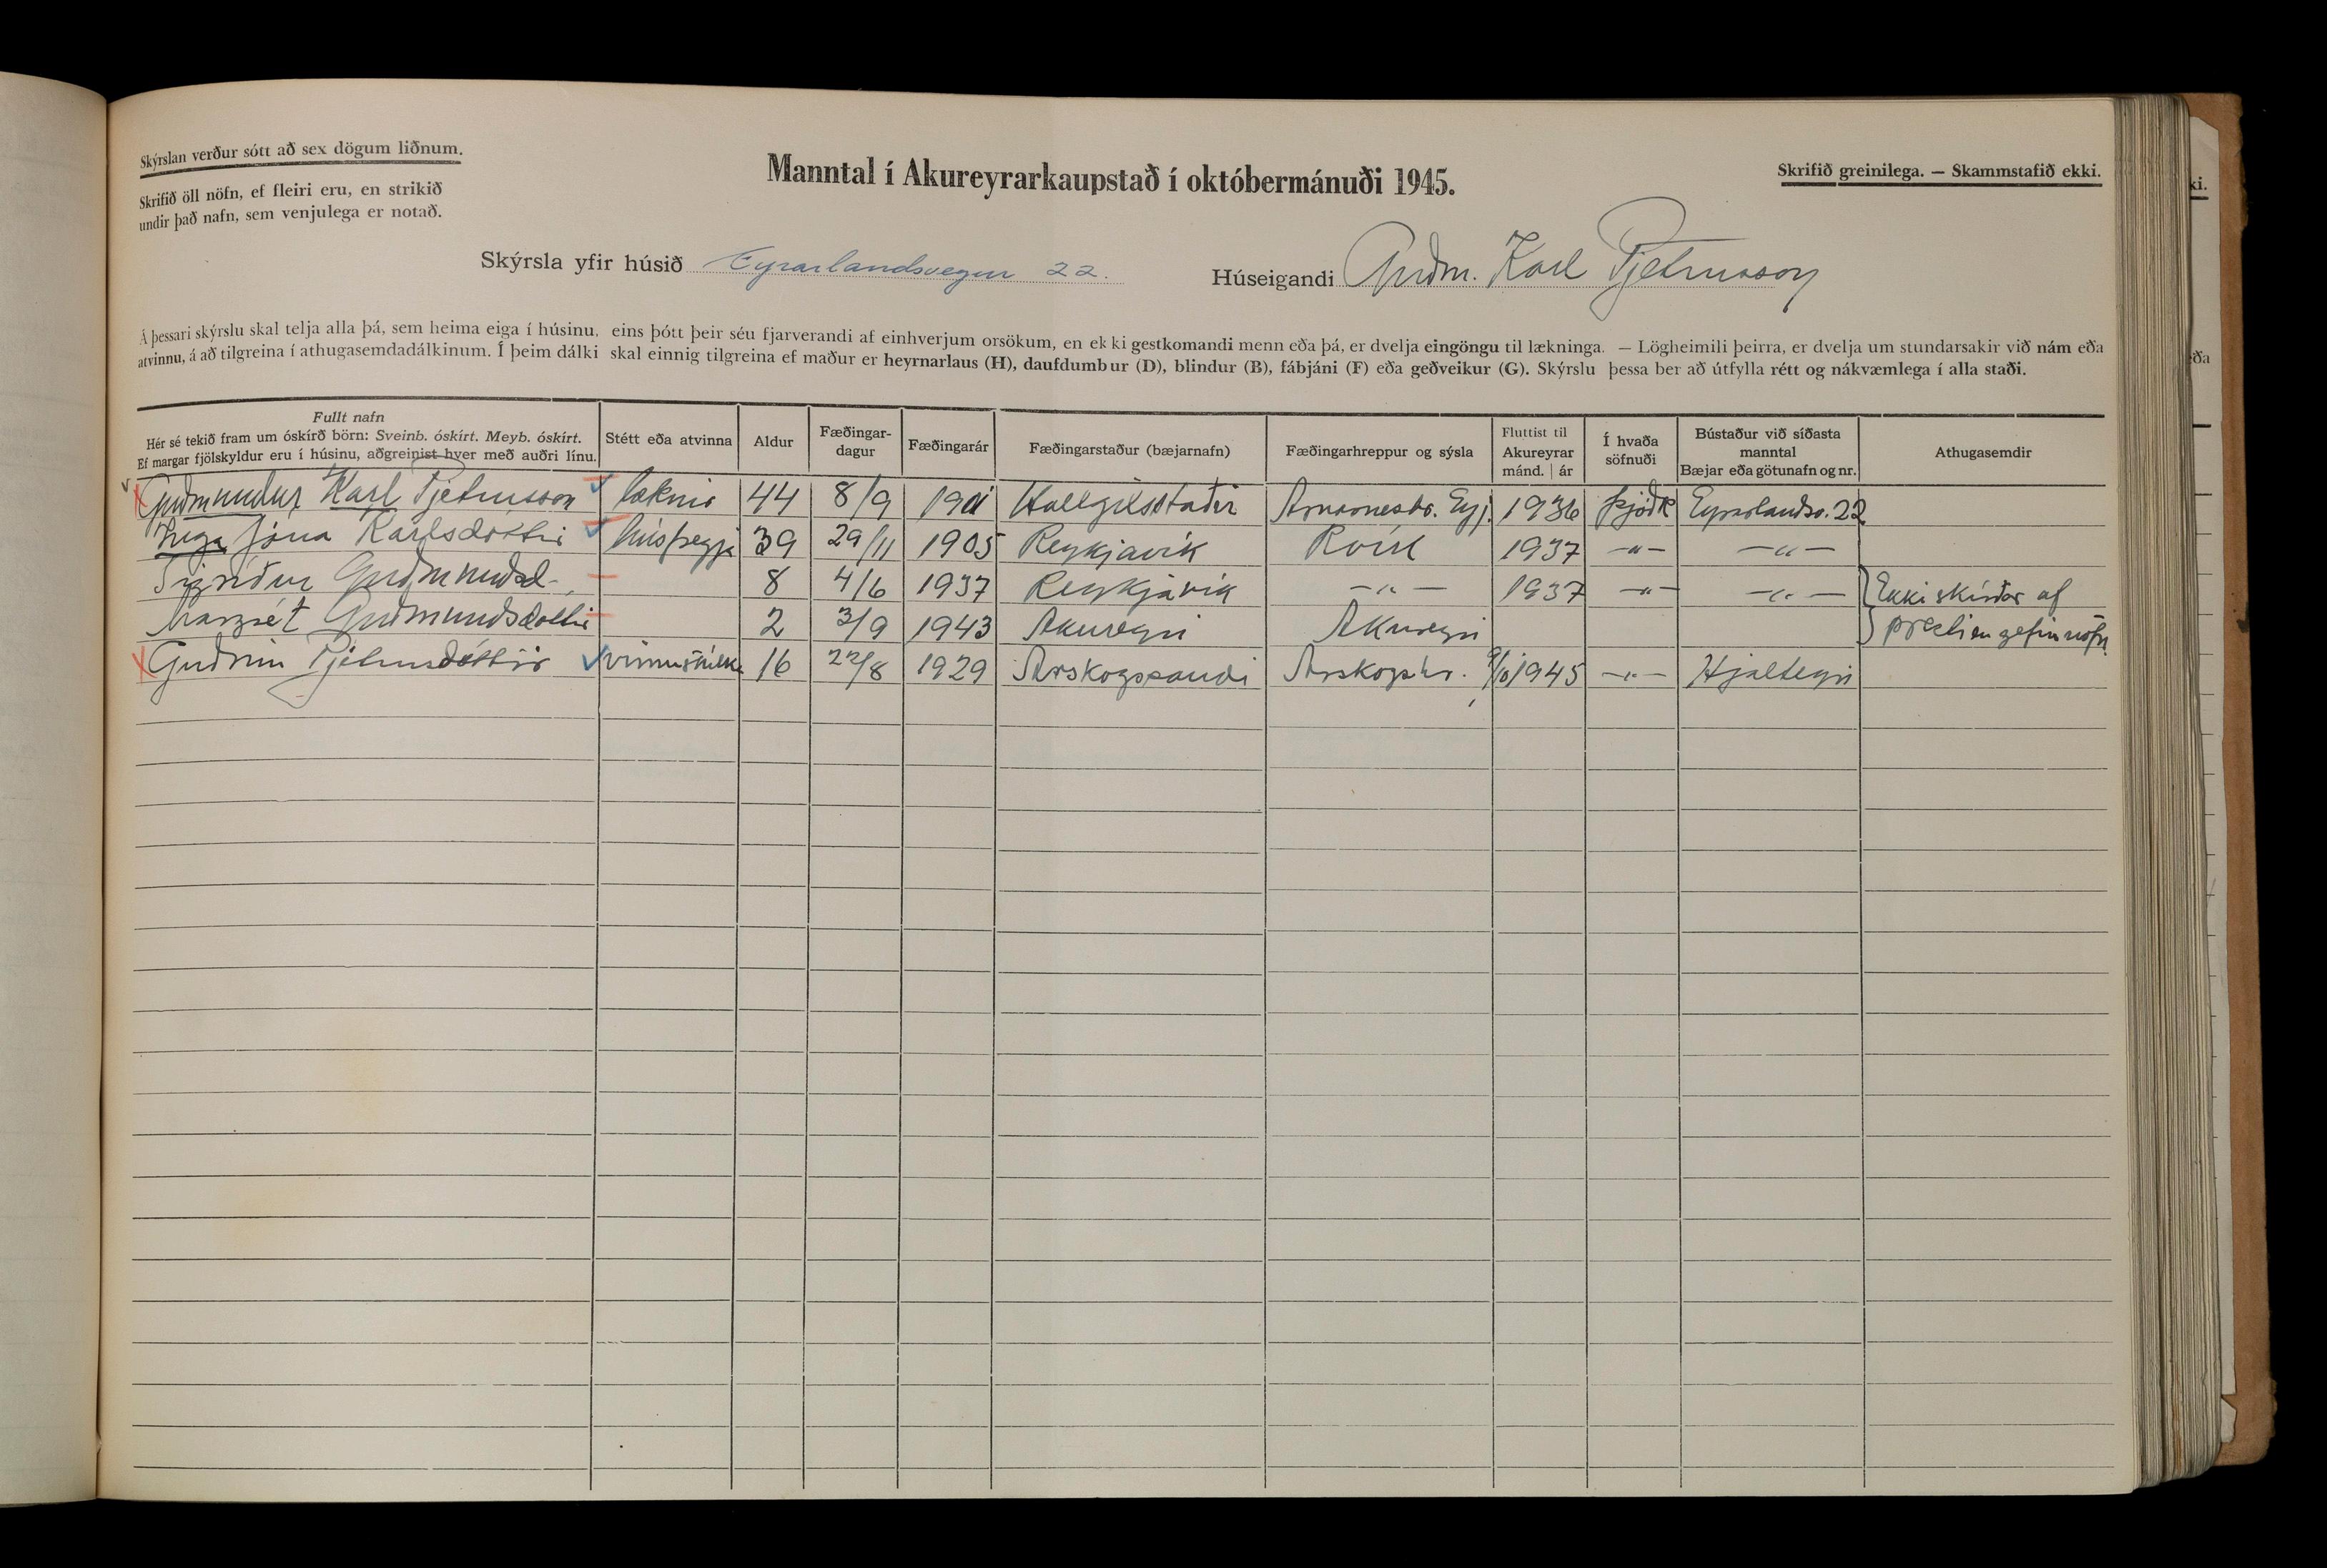 Skýrslan verður sótt að sex dögum liðnum.
Skrifið öll nöfn, ef fleiri eru, en strikið
undir það nafn, sem venjulega er notað.
Manntal í Akureyrarkaupstað í októbermánuði 1945.
Skrifið greinilega. — Skammstafið ekki.
Skýrsla yfir húsið Eyrarlandsvegur 22.
Húseigandi Guðm. Karl Pjetursson
Á þessari skýrslu skal telja alla þá, sem heima eiga í húsinu, eins þótt þeir séu fjarverandi af einhverjum orsökum, en ekki gestkomandi menn eða þá, er dvelja eingöngu til lækninga. — Lögheimili þeirra, er dvelja um stundarsakir við nám eða
atvinnu, á að tilgreina í athugasemdadálkinum. Í þeim dálki skal einnig tilgreina ef maður er heyrnarlaus (H), daufdumbur (D), blindur (B), fábjáni (F) eða geðveikur (G). Skýrslu þessa ber að útfylla rétt og nákvæmlega í alla staði.
Fullt nafn
Hér sé tekið fram um óskírð börn: Sveinb. óskírt. Meyb. óskírt.
Ef margar fjölskyldur eru í húsinu, aðgreinist hver með auðri línu.
Stétt eða atvinna
Aldur
Fæðingar-
dagur
Fæðingarár
Fæðingarstaður (bæjarnafn)
Fæðingarhreppur og sýsla
Fluttist til
Akureyrar
mánd. | ár
Í hvaða
söfnuði
Bústaður við síðasta
manntal
Bæjar eða götunafn og nr.
Athugasemdir
Guðmundur Karl Pjetursson læknir 44 8/9 1901 Hallgilsstaðir Arnarneshr. Eyj. 1936 Þjóðk Eyrarlandsv. 22
Inga Jóna Karlsdóttir húsfreyja 39 29/11 1905 Reykjavík Rvík 1937 —"— —"—
Sigríður Guðmundsd. 8 4/6 1937 Reykjavík —"— 1937 —"— —"— Ekki skírðar af
Margrét Guðmundsdóttir 2 3/9 1943 Akureyri Akureyri presti en gefin nöfn
Guðrún Pjetursdóttir vinnustúlka 16 22/8 1929 Árskogssandi Árskogshr. 1945 —"— Hjalteyri